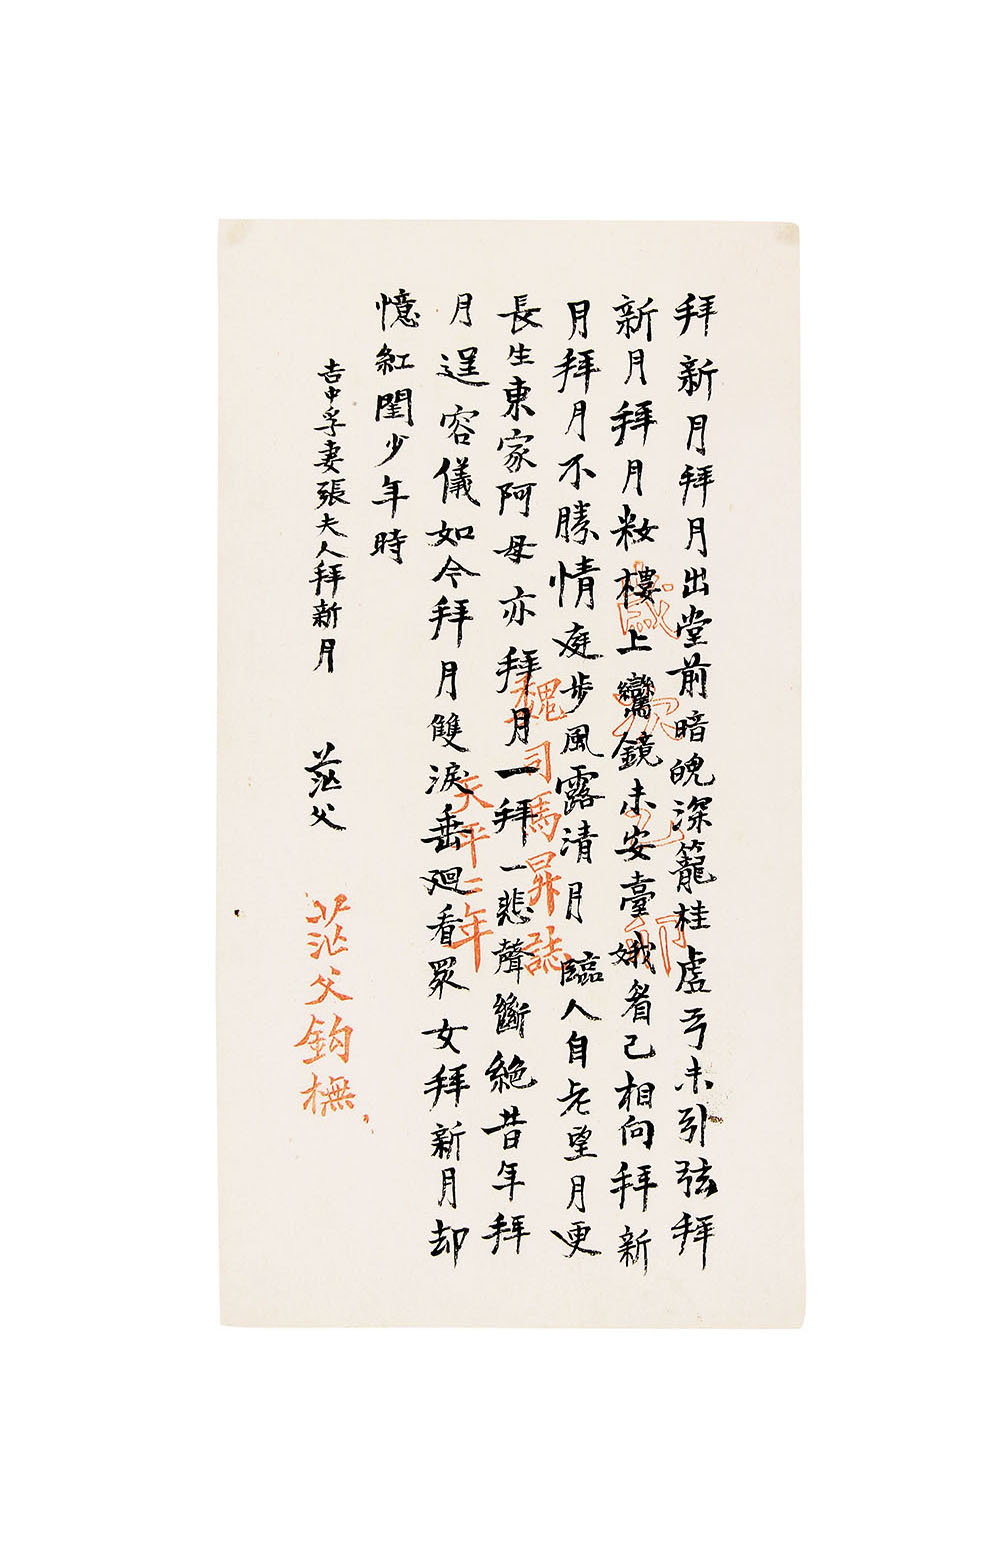 拜新月拜月出堂前暗魄深籠桂虛弓未引弦拜
新月拜月妝樓上鸞鏡未安臺蛾眉已相向拜新
月拜月不勝情庭步風露清月臨人自老望月更
長生東家阿母亦拜月一拜一悲聲斷絕昔年拜
月逞容儀如今拜月雙淚垂迴看眾女拜新月却
憶紅閨少年時
吉中孚妻張夫人拜新月
茫父
魏司馬昇誌
天平二年
茫父鉤橅